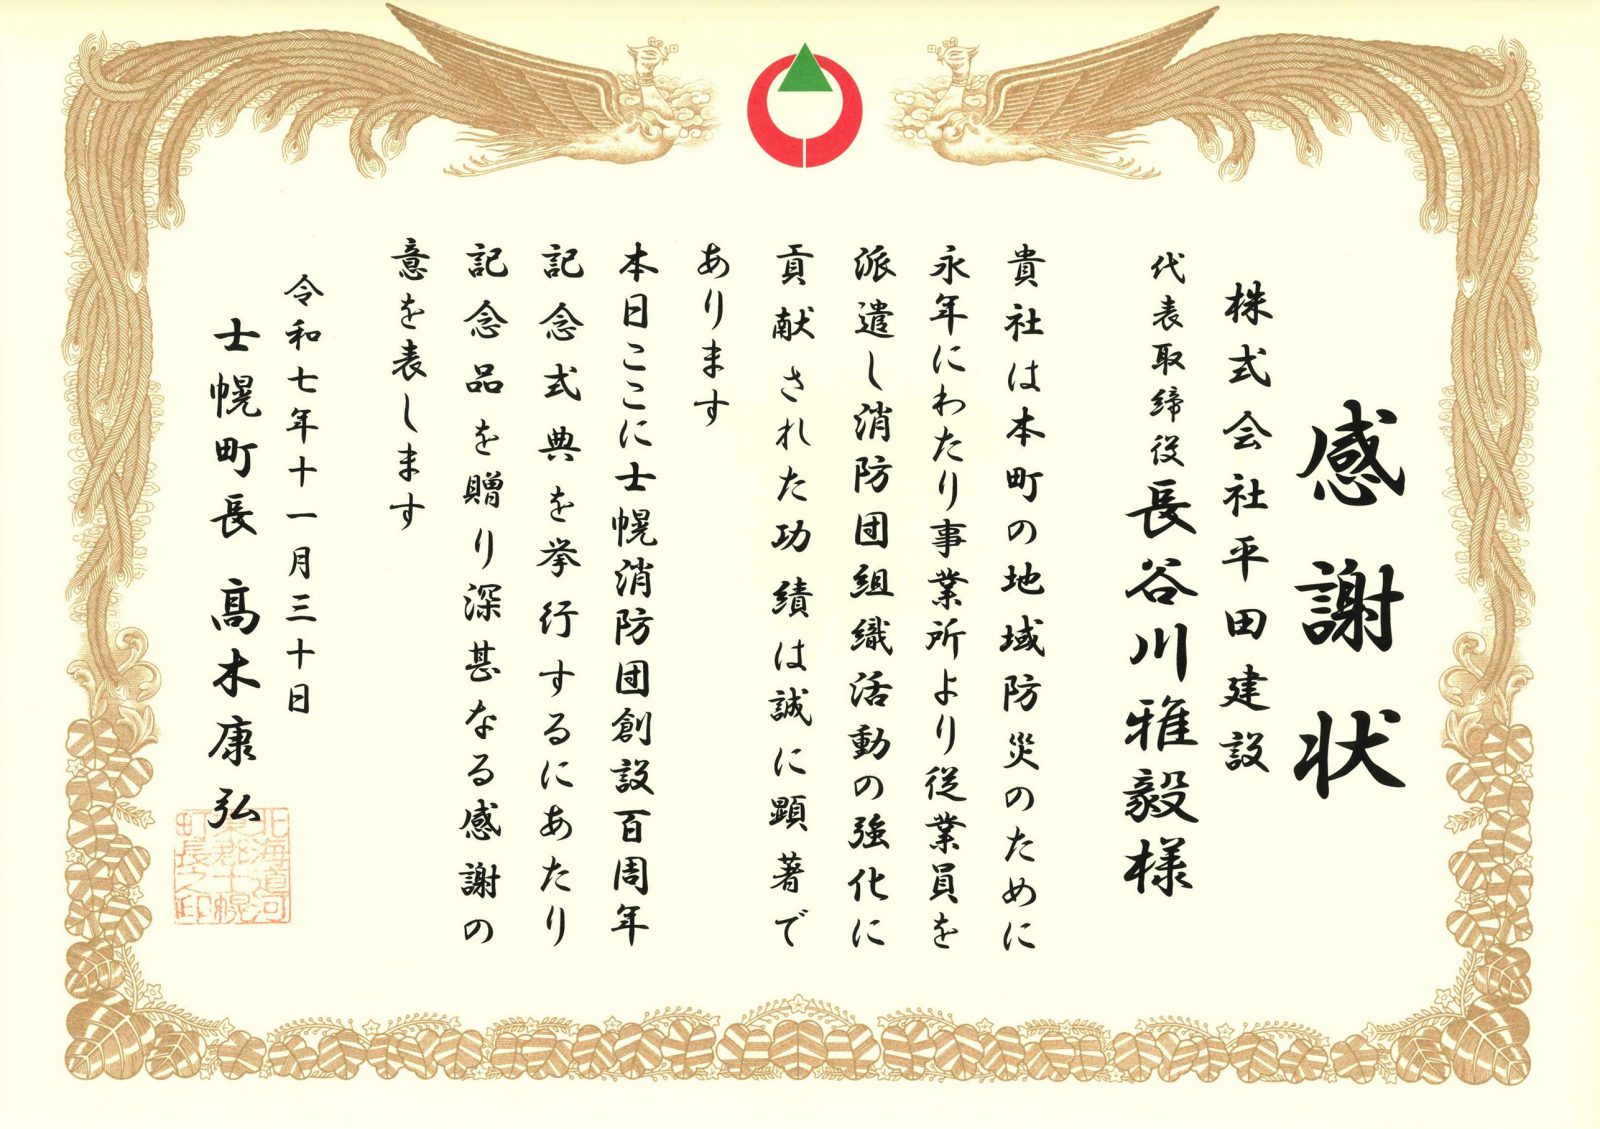 感謝状
株式会社平田建設
代表取締役長谷川雅毅様
貴社は本町の地域防災のために
永年にわたり事業所より従業員を
派遣し消防団組織活動の強化に
貢献された功績は誠に顕著で
あります
本日ここに士幌消防団創設百周年
記念式典を挙行するにあたり
記念品を贈り深甚なる感謝の
意を表します
令和七年十一月三十日
士幌町長 髙木康弘
北海道河
東郡士幌
町長之印